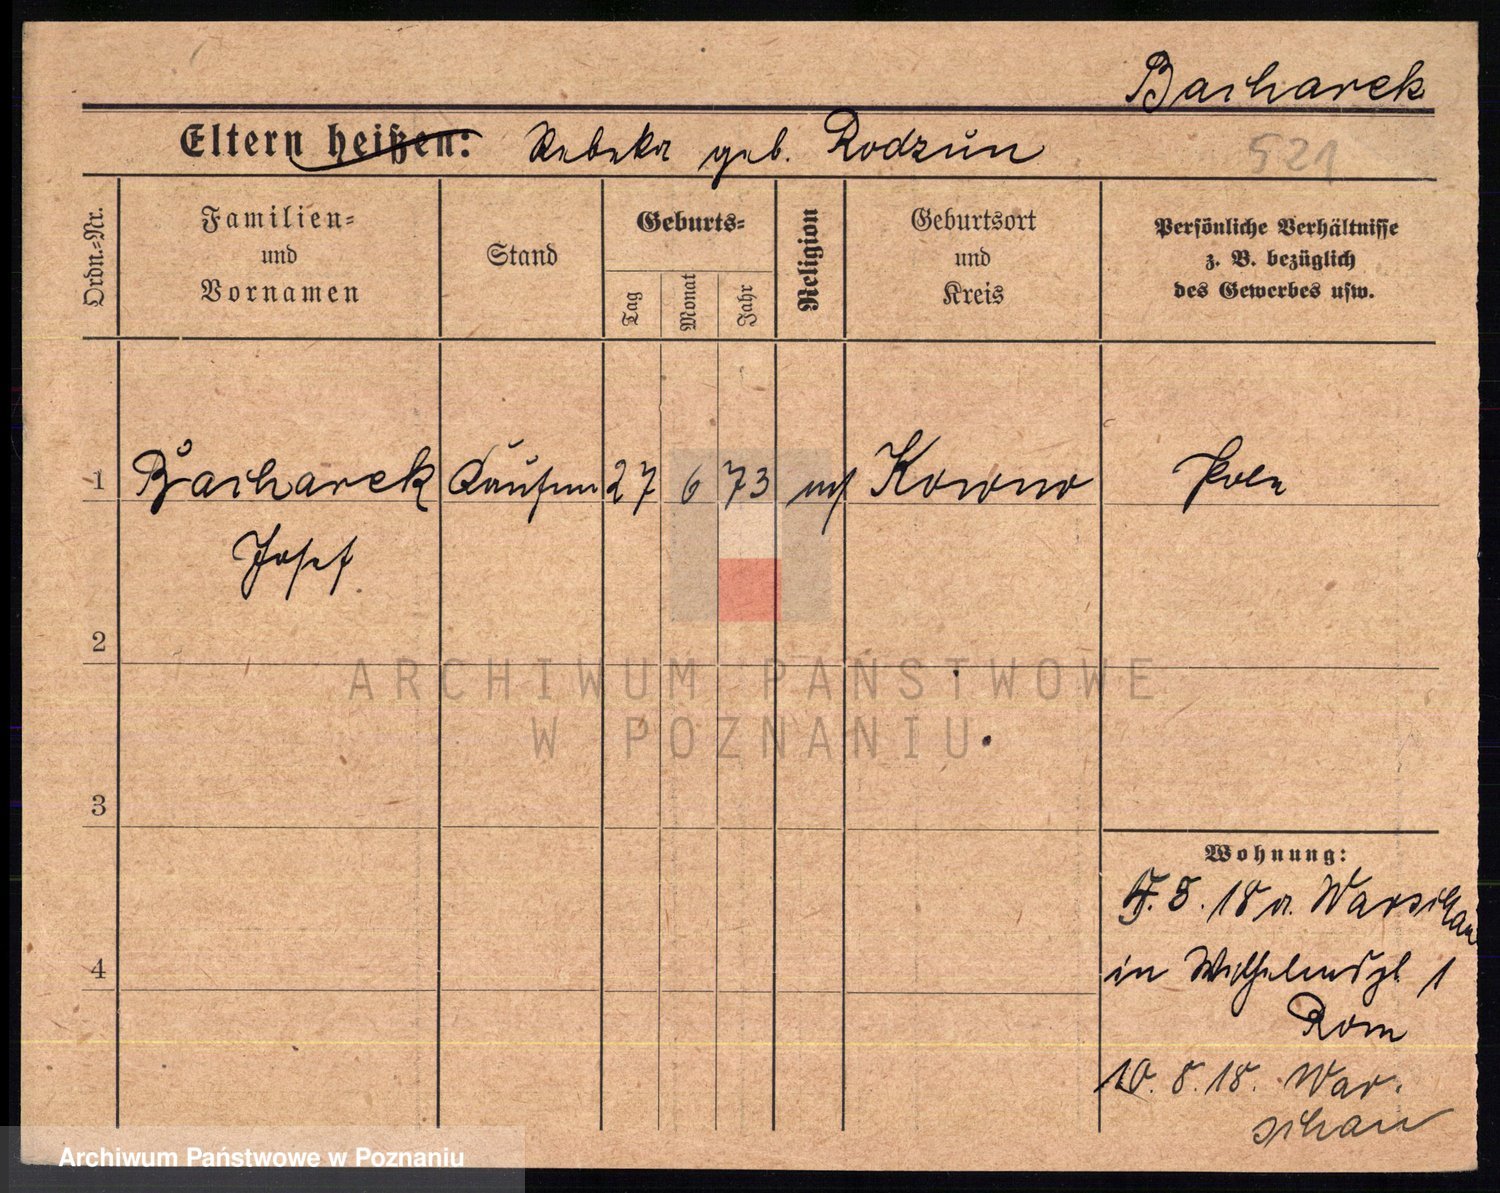 Bacharek
Eltern heißen: Rebeka geb. Rodzun
521
Ordn.-Nr.
Familien-
und
Vornamen
Stand
Geburts-
Tag
Monat
Jahr
Religion
Geburtsort
und
Kreis
Persönliche Verhältnisse
z. B. bezüglich
des Gewerbes usw.
1 Bacharek Kaufm 27 6 73 Kowno Pole
Josef
2
3
4
Wohnung:
8. 18 a. Warschau
in Wilhelmspl. 1
Rom
10. 8. 18. War-
schau
ARCHIWUM PAŃSTWOWE
W POZNANIU
Archiwum Państwowe w Poznaniu